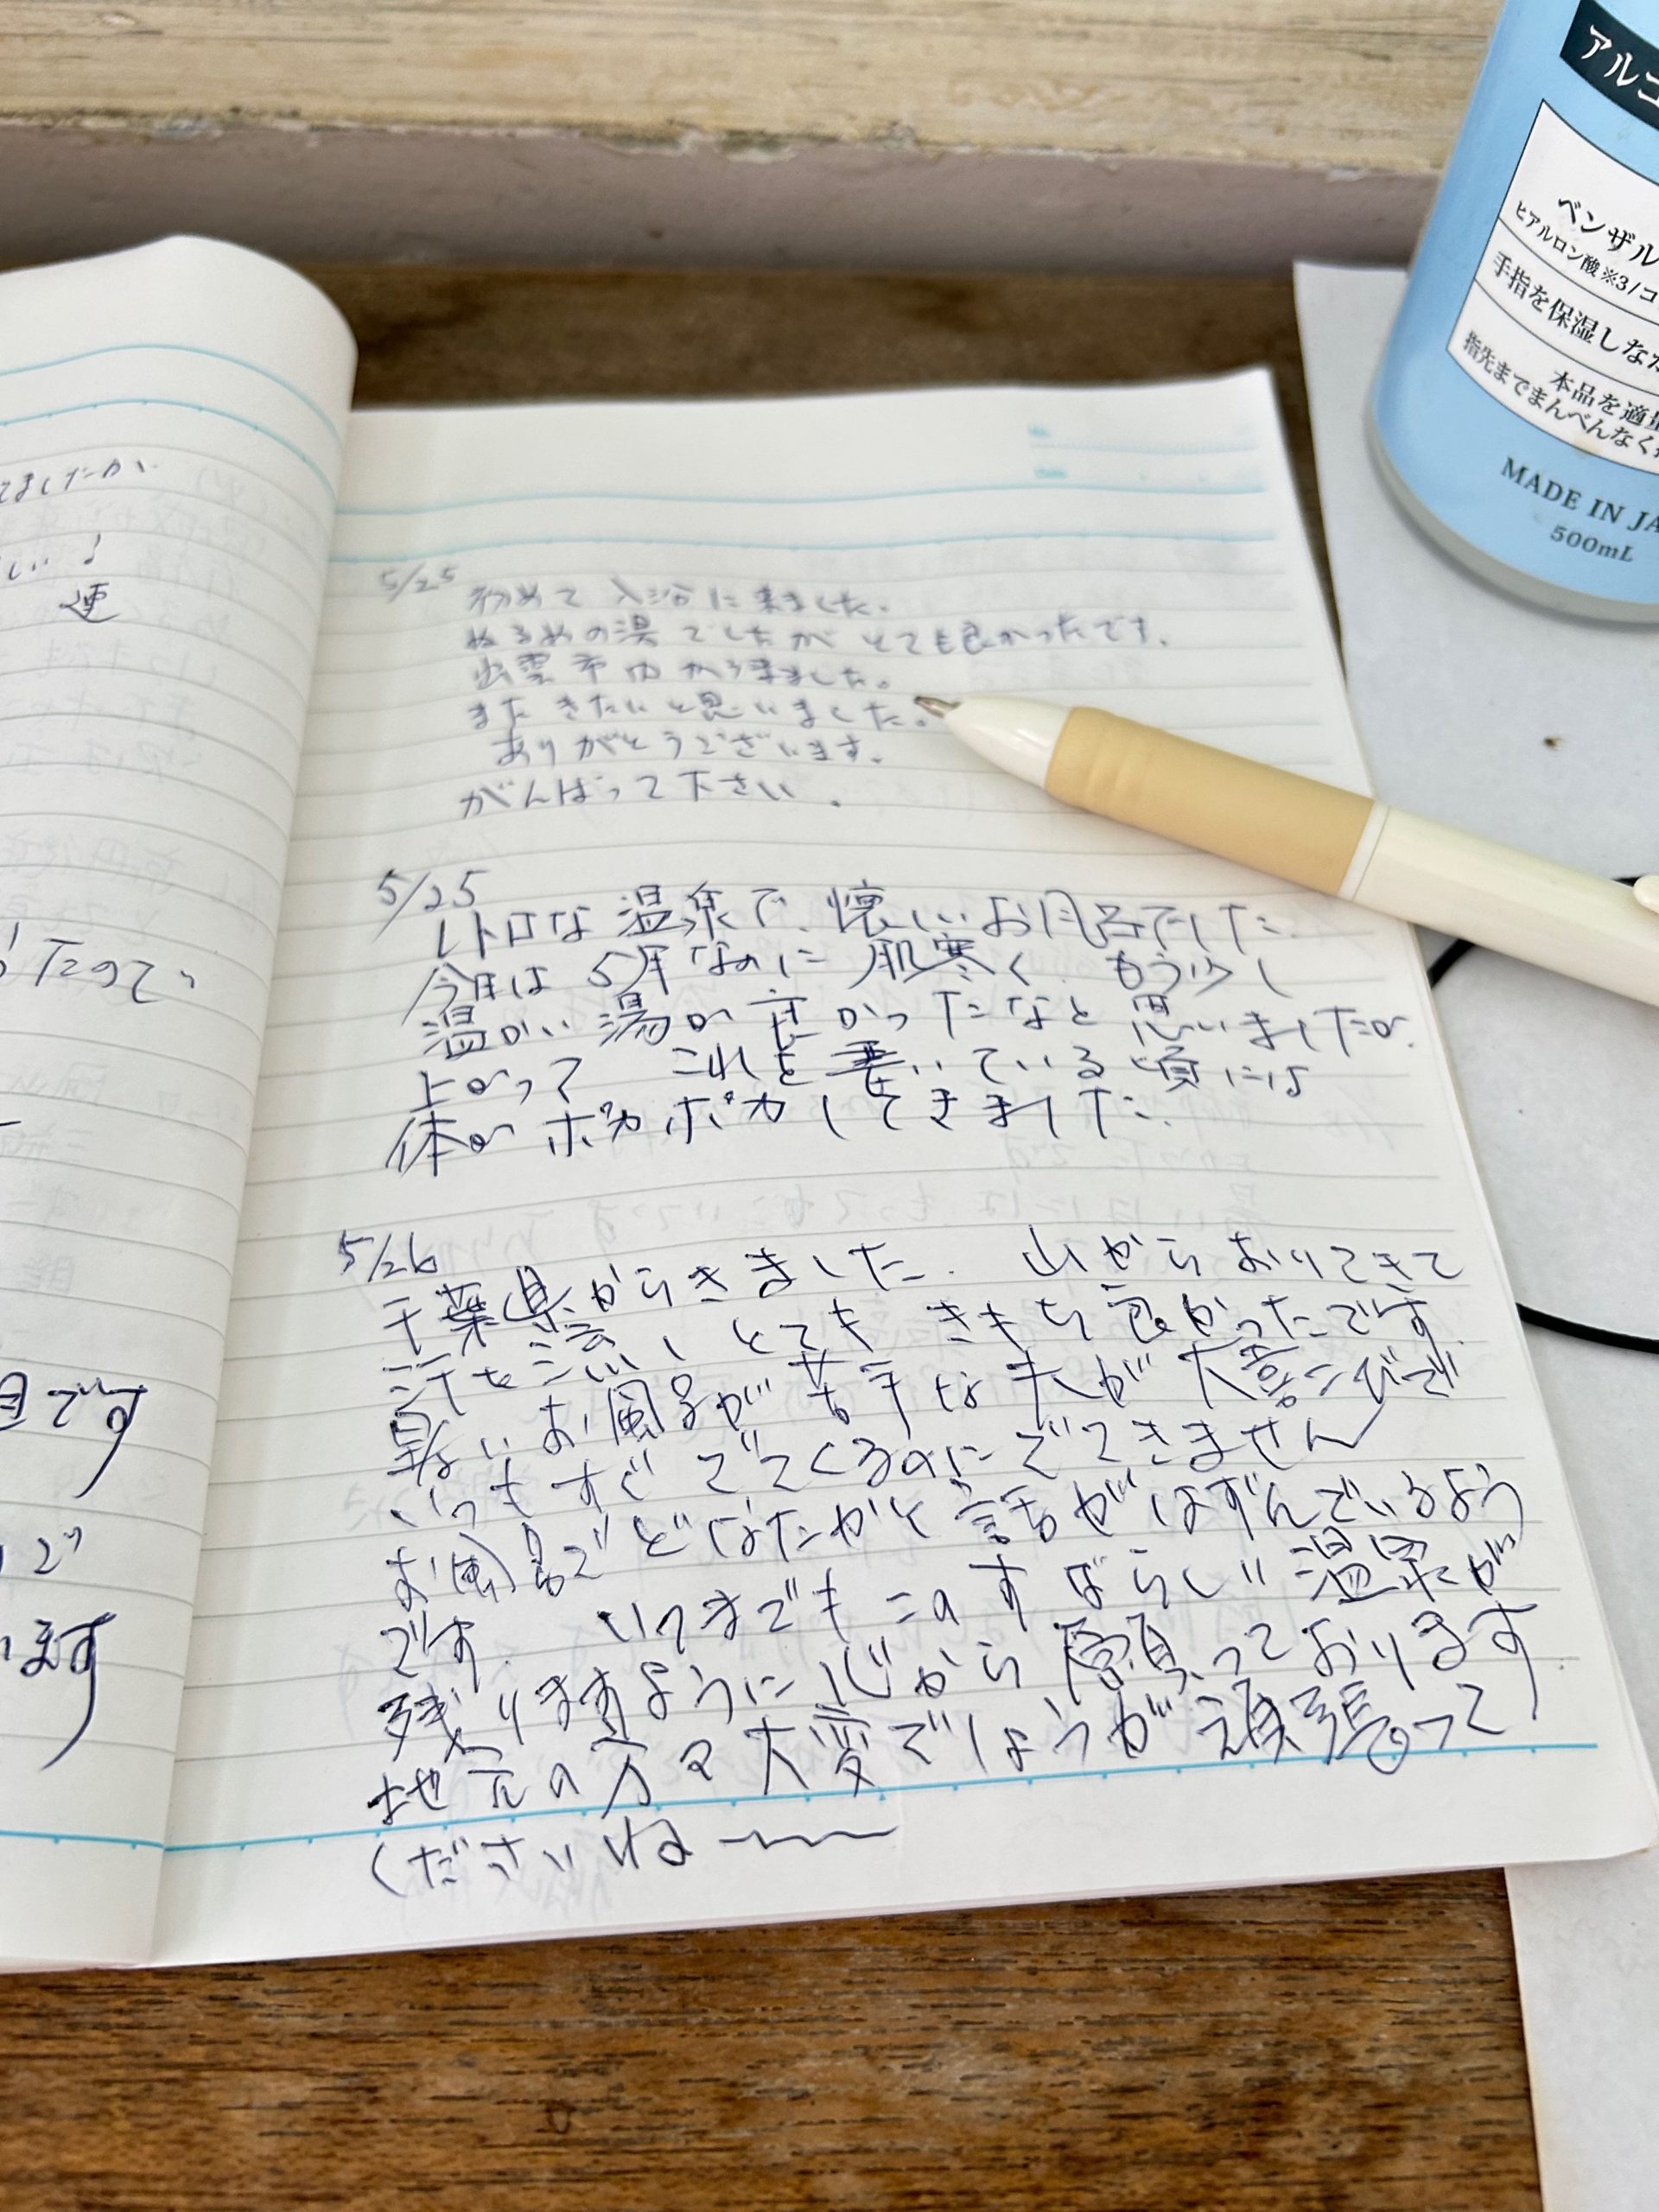 てましたか
しい!
連
たので、
目です
います
5/25 初めて入浴に来ました。
ぬるめの湯でしたがとても良かったです。
出雲市内から来ました。
またきたいと思いました。
ありがとうございます。
がんばって下さい。
5/25
レトロな温泉で、懐しいお風呂でした。
今日は5月なのに肌寒く もう少し
温かい湯が良かったなと思いましたが、
上がって これを書いている頃には
体がポカポカしてきました。
5/26
千葉県からきました。 山からおりてきて
汗を流し、とてもきもち良かったです。
暑いお風呂が苦手な夫が大喜こびで
いつもすぐでてくるのにでてきません
お風呂でどなたかと話がはずんでいるよう
です。 いつまでもこのすばらしい温泉が
残りますように心から願っております
地元の方々大変でしょうが頑張って
くださいね〜
アルコ
ベンザル
ヒアルロン酸※3/コ
手指を保湿しなが
本品を適量
指先までまんべんなく
MADE IN JA
500mL